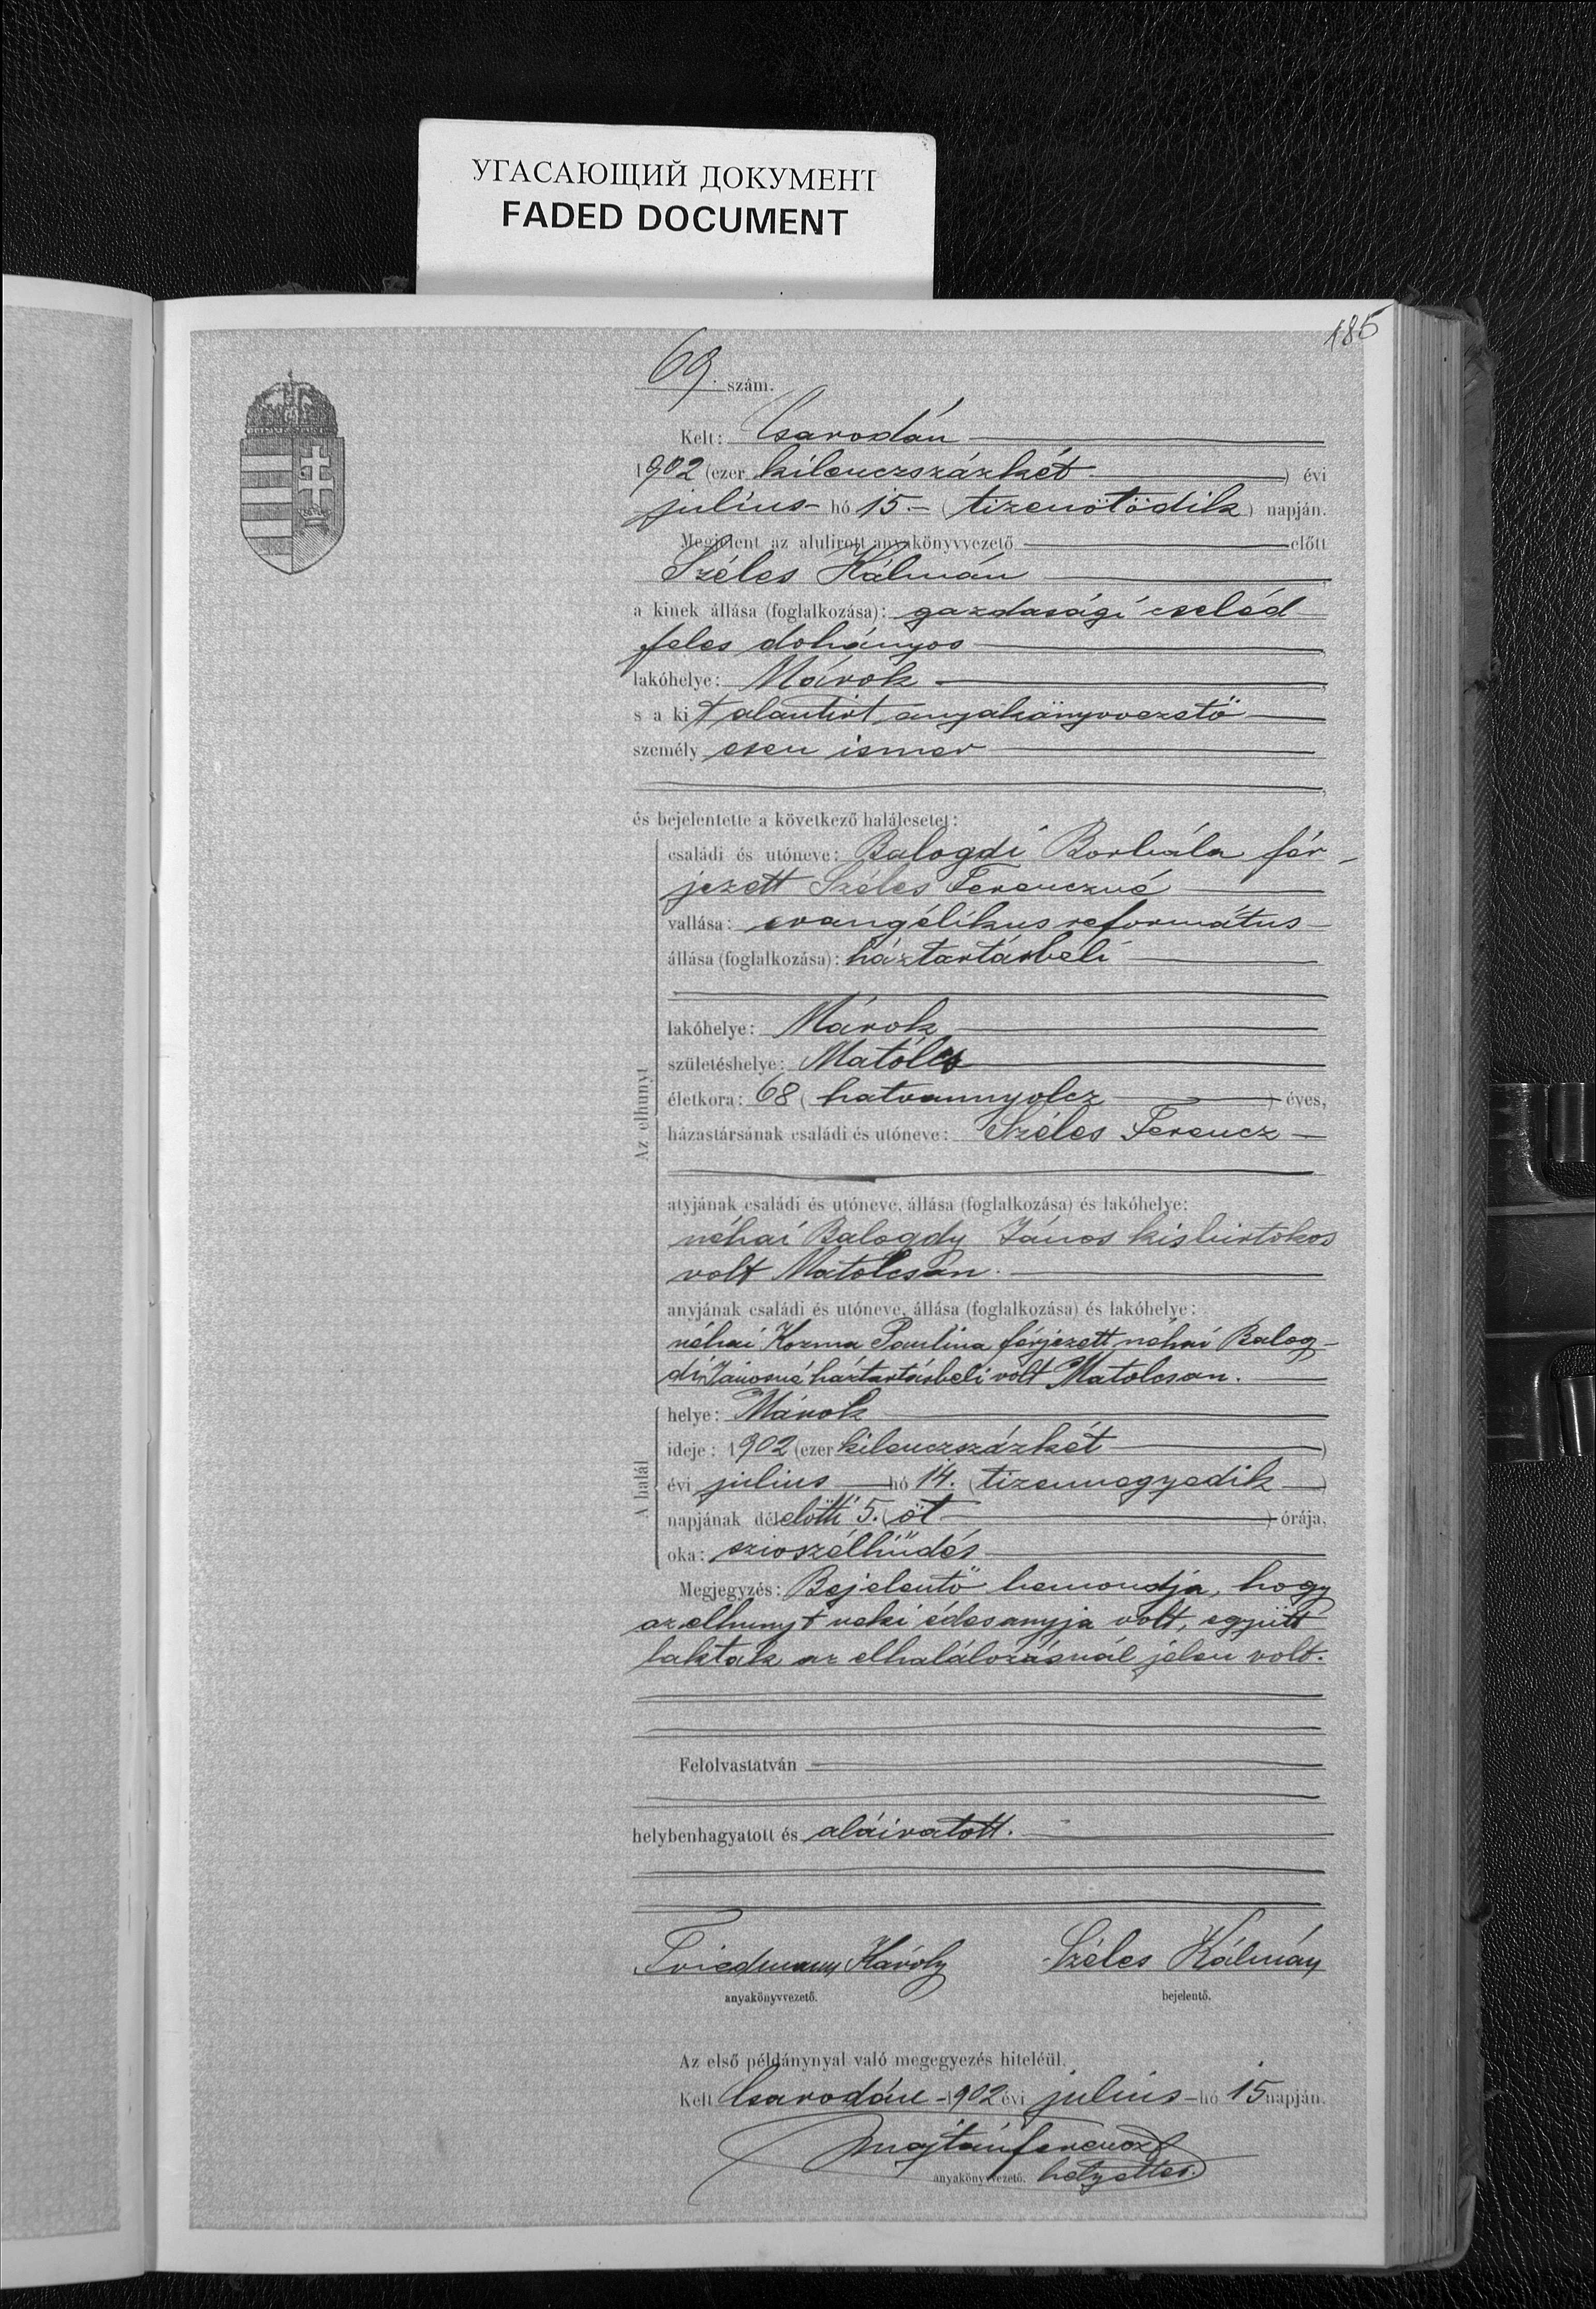 УГАСАЮЩИЙ ДОКУМЕНТ
FADED DOCUMENT
185
69. szám.
Kelt: Csarodán
1902 (ezer kilenczszázkét) évi
július hó 15.- (tizenötödik) napján.
Megjelent az alulirott anyakönyvvezető előtt
Széles Kálmán
a kinek állása (foglalkozása): gazdasági cseléd
feles dohányos
lakóhelye: Márok
s a kit alantirt anyakönyvvezető
személyesen ismer
és bejelentette a következő halálesetet:
családi és utóneve: Balogdi Borbála fér-
jezett Széles Ferenczné
vallása: evangélikus református
állása (foglalkozása): háztartásbeli
lakóhelye: Márok
születéshelye: Matólcs
Az elhunyt
életkora: 68 (hatvannyolcz) éves,
házastársának családi és utóneve: Széles Ferencz
atyjának családi és utóneve, állása (foglalkozása) és lakóhelye:
néhai Balogdy János kisbirtokos
volt Matolcsán.
anyjának családi és utóneve, állása (foglalkozása) és lakóhelye:
néhai Kozma Paulina férjezett néhai Balog-
di Jánosné háztartásbeli volt Matolcson.
helye: Márok
ideje: 1902 (ezer kilenczszázkét)
A halál
évi július hó 14. (tizennegyedik)
napjának délelőtti 5. (öt) órája,
oka: szívszélhűdés
Megjegyzés: Bejelentő bemondja, hogy
az elhunyt neki édesanyja volt, együtt
laktak az elhalálozásnál jelen volt.
Felolvastatván
helybenhagyatott és aláíratott.
Friedmann Károly Széles Kálmán
anyakönyvvezető. bejelentő.
Az első példánynyal való megegyezés hiteléül.
Kelt Csarodán 1902 évi július hó 15 napján.
Majtán Ferencz
anyakönyvvezető. helyettes.